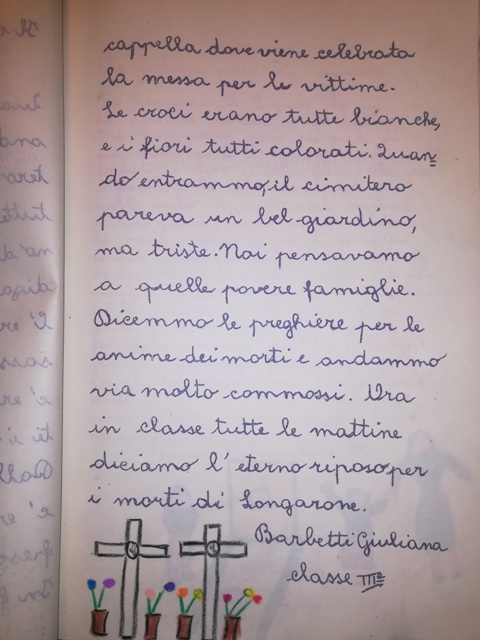 cappella dove viene celebrata
la messa per le vittime.
Le croci erano tutte bianche,
e i fiori tutti colorati. Quan=
do entrammo, il cimitero
pareva un bel giardino,
ma triste. Noi pensavamo
a quelle povere famiglie.
Dicemmo le preghiere per le
anime dei morti e andammo
via molto commossi. Ora
in classe tutte le mattine
diciamo l'eterno riposo per
i morti di Longarone.
Barbetti Giuliana
classe IIIª